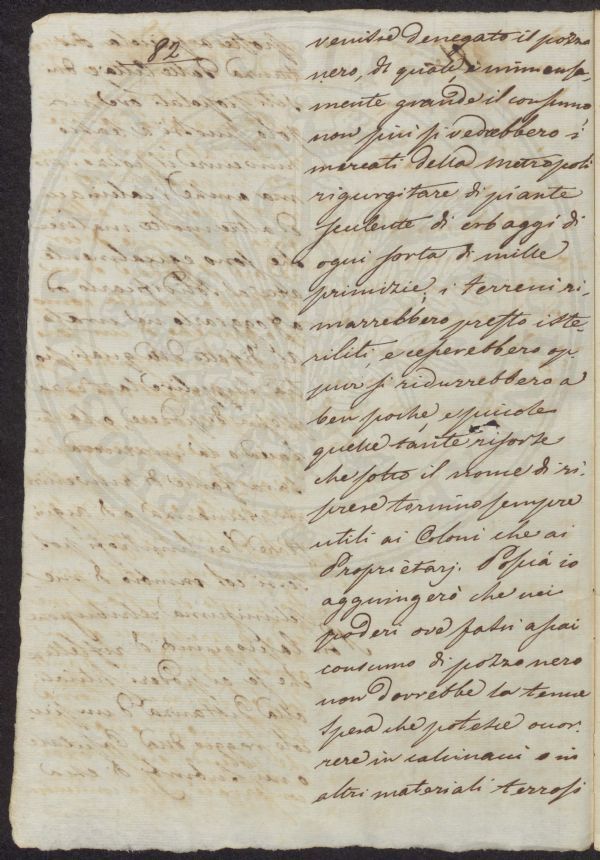 82
venisse denegato il pozzo
nero, di quale, è immensa,
mente grande il consumo,
non più si vedrebbero i
mercati della Metropoli
rigurgitare di piante
sculente di erbaggi di
ogni sorta di mille
primizie; i terreni ri,
marrebbero presto iste,
riliti, e ceperebbero op
pur si ridurrebbero a
ben poche, e piccole
quelle tante risorse
che sotto il nome di ri,
prese tornino sempre
utili ai Coloni che ai
Proprietarj. Possia io
aggiungerò che nei
poderi ove fassi assai
consumo di pozzo nero
non dovrebbe la tenue
spesa che potesse occor,
rere in calcinacci o in
altri materiali terrosi